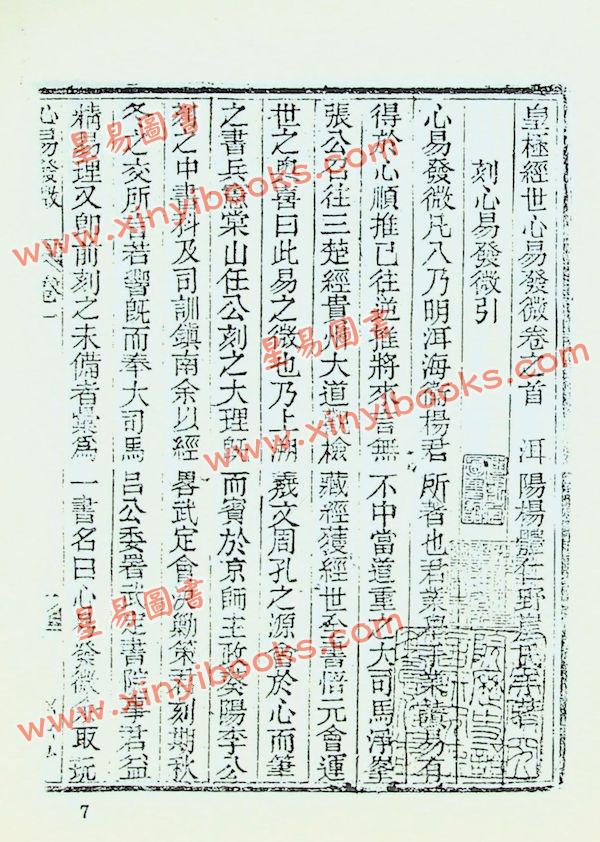 皇極經世心易發微卷之首 洱陽楊體仁野崖氏等著
刻心易發微引
心易發微凡八乃明洱海衛楊君所著也君業舉子業讀易有
得於心順推已往逆推將來言無不中當道重之大司馬淨峯
張公召往三楚經貴州大道 檢藏經獲經世全書悟元會運
世之奧喜曰此易之微也乃上溯羲文周孔之源會於心而筆
之書兵憲棠山任公刻之大理既而賓於京師主政癸陽李公
刻之中書科及司訓鎮南余以經畧武定會 鄭策 刻期秋
冬之交所 若響既而奉大司馬呂公委署武定書院事君益
精易理又即前刻之未備者彙為一書名曰心易發微 取玩
心易發微 卷一
星易圖書
www.xinyibooks.com
星易圖書
www.xinyibooks.com
www.xinyibooks.com
星易圖書
www.xinyibooks.com
7